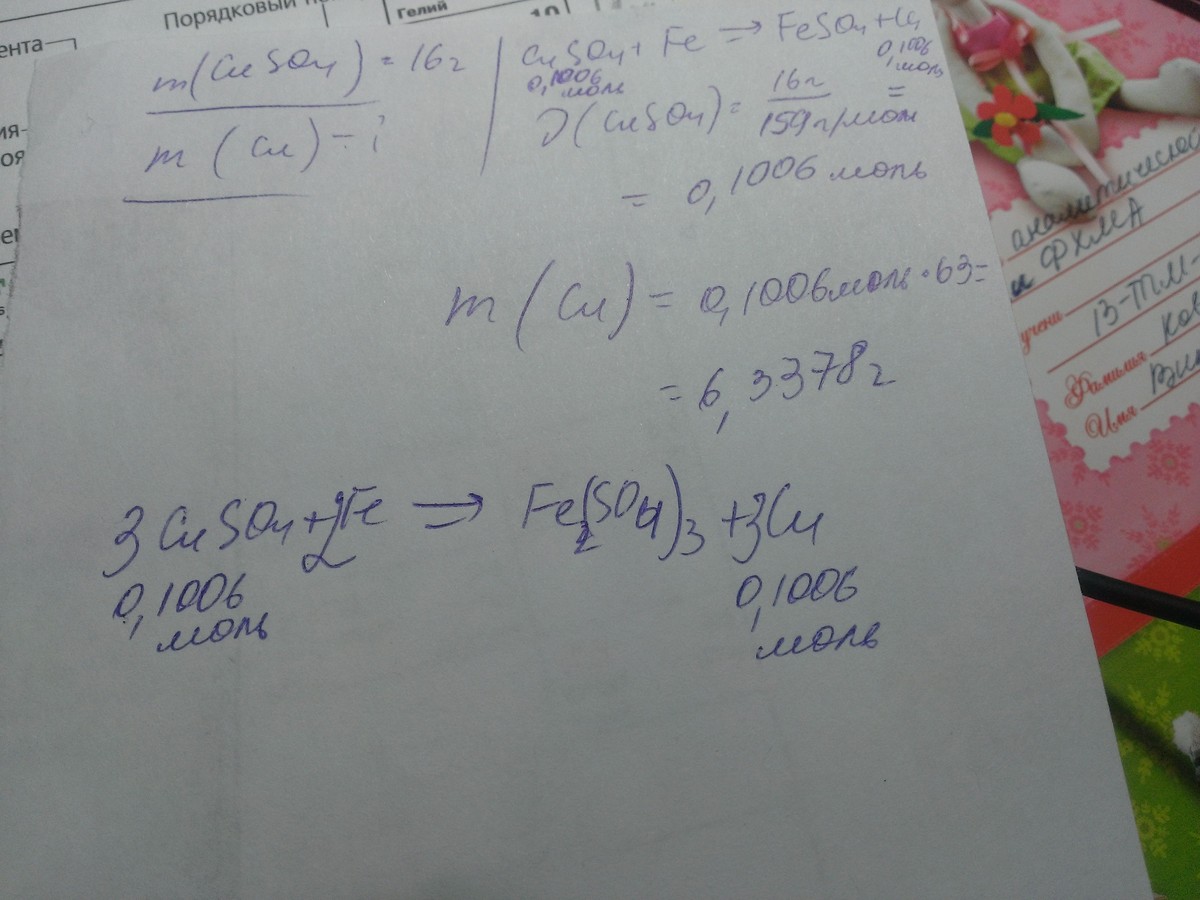 Порядковый
Гелий
ента
m(CuSO4) = 16г
m (Cu) - ?
CuSO4 + Fe => FeSO4 + Cu
0,1006 моль
0,1006 моль
ν(CuSO4) = 16г / 159г/моль =
= 0,1006 моль
m (Cu) = 0,1006моль·63=
= 6,3378г
3CuSO4+2Fe => Fe2(SO4)3 +3Cu
0,1006 моль
0,1006 моль
и ФХМА
13-ТМ-
Фамилия
Имя